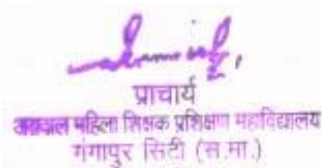 प्राचार्य
अग्रवाल महिला शिक्षक प्रशिक्षण महाविद्यालय
गंगापुर सिटी (स.मा.)